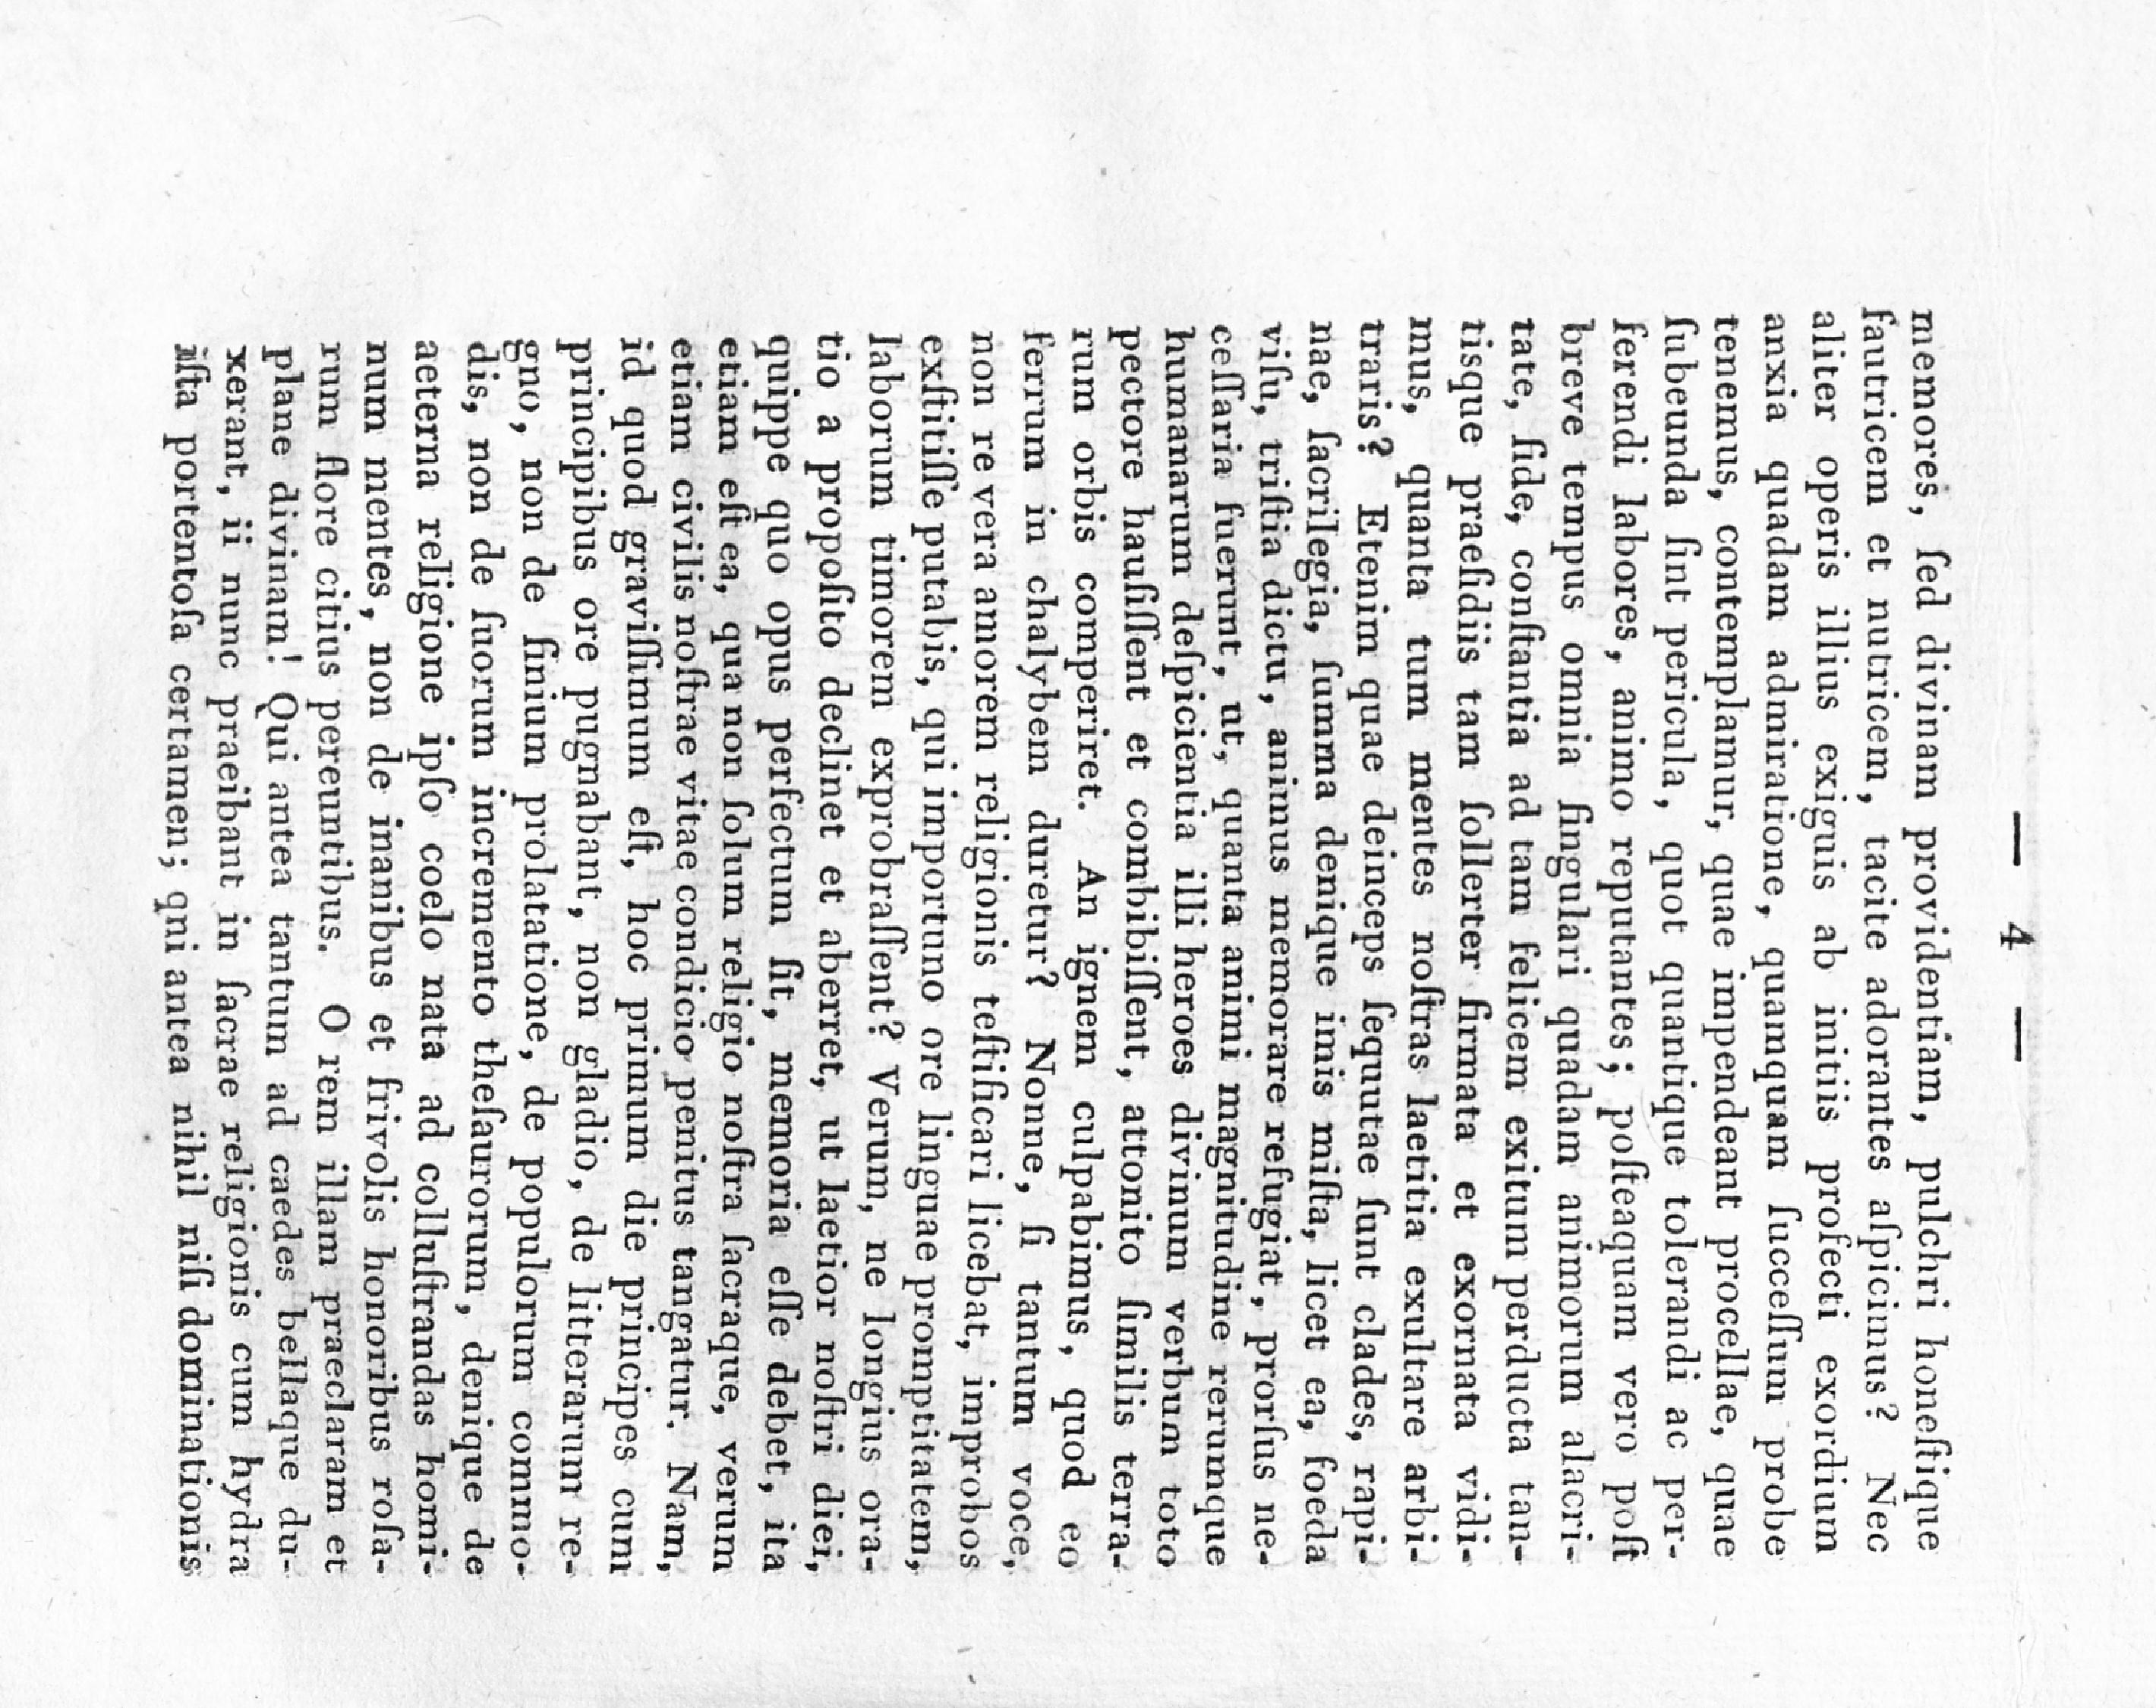 — 4 —
memores, ſed divinam providentiam, pulchri honeſtique
fautricem et nutricem, tacite adorantes aſpicimus? Nec
aliter operis illius exiguis ab initiis profecti exordium
anxia quadam admiratione, quamquam ſucceſſum probe
tenemus, contemplamur, quae impendeant procellae, quae
ſubeunda ſint pericula, quot quantique tolerandi ac per-
ferendi labores, animo reputantes; poſteaquam vero poſt
breve tempus omnia ſingulari quadam animorum alacri-
tate, fide, conſtantia ad tam felicem exitum perducta tan-
tisque praeſidiis tam ſollerter firmata et exornata vidi-
mus, quanta tum mentes noſtras laetitia exultare arbi-
traris? Etenim quae deinceps ſequutae ſunt clades, rapi-
nae, ſacrilegia, ſumma denique imis miſta, licet ea, foeda
viſu, triſtia dictu, animus memorare refugiat, prorſus ne-
ceſſaria fuerunt, ut, quanta animi magnitudine rerumque
humanarum deſpicientia illi heroes divinum verbum toto
pectore hauſiſſent et combibiſſent, attonito ſimilis terra-
rum orbis comperiret. An ignem culpabimus, quod eo
ferrum in chalybem duretur? Nonne, ſi tantum voce,
non re vera amorem religionis teſtificari licebat, improbos
exſtitiſſe putabis, qui importuno ore linguae promptitatem,
laborum timorem exprobraſſent? Verum, ne longius ora-
tio a propoſito declinet et aberret, ut laetior noſtri diei,
quippe quo opus perfectum ſit, memoria eſſe debet, ita
etiam eſt ea, qua non ſolum religio noſtra ſacraque, verum
etiam civilis noſtrae vitae condicio penitus tangatur. Nam,
id quod graviſſimum eſt, hoc primum die principes cum
principibus ore pugnabant, non gladio, de litterarum re-
gno, non de finium prolatatione, de populorum commo-
dis, non de ſuorum incremento theſaurorum, denique de
aeterna religione ipſo coelo nata ad colluſtrandas homi-
num mentes, non de inanibus et frivolis honoribus roſa-
rum flore citius pereuntibus. O rem illam praeclaram et
plane divinam! Qui antea tantum ad caedes bellaque du-
xerant, ii nunc praeibant in ſacrae religionis cum hydra
iſta portentoſa certamen; qni antea nihil niſi dominationis